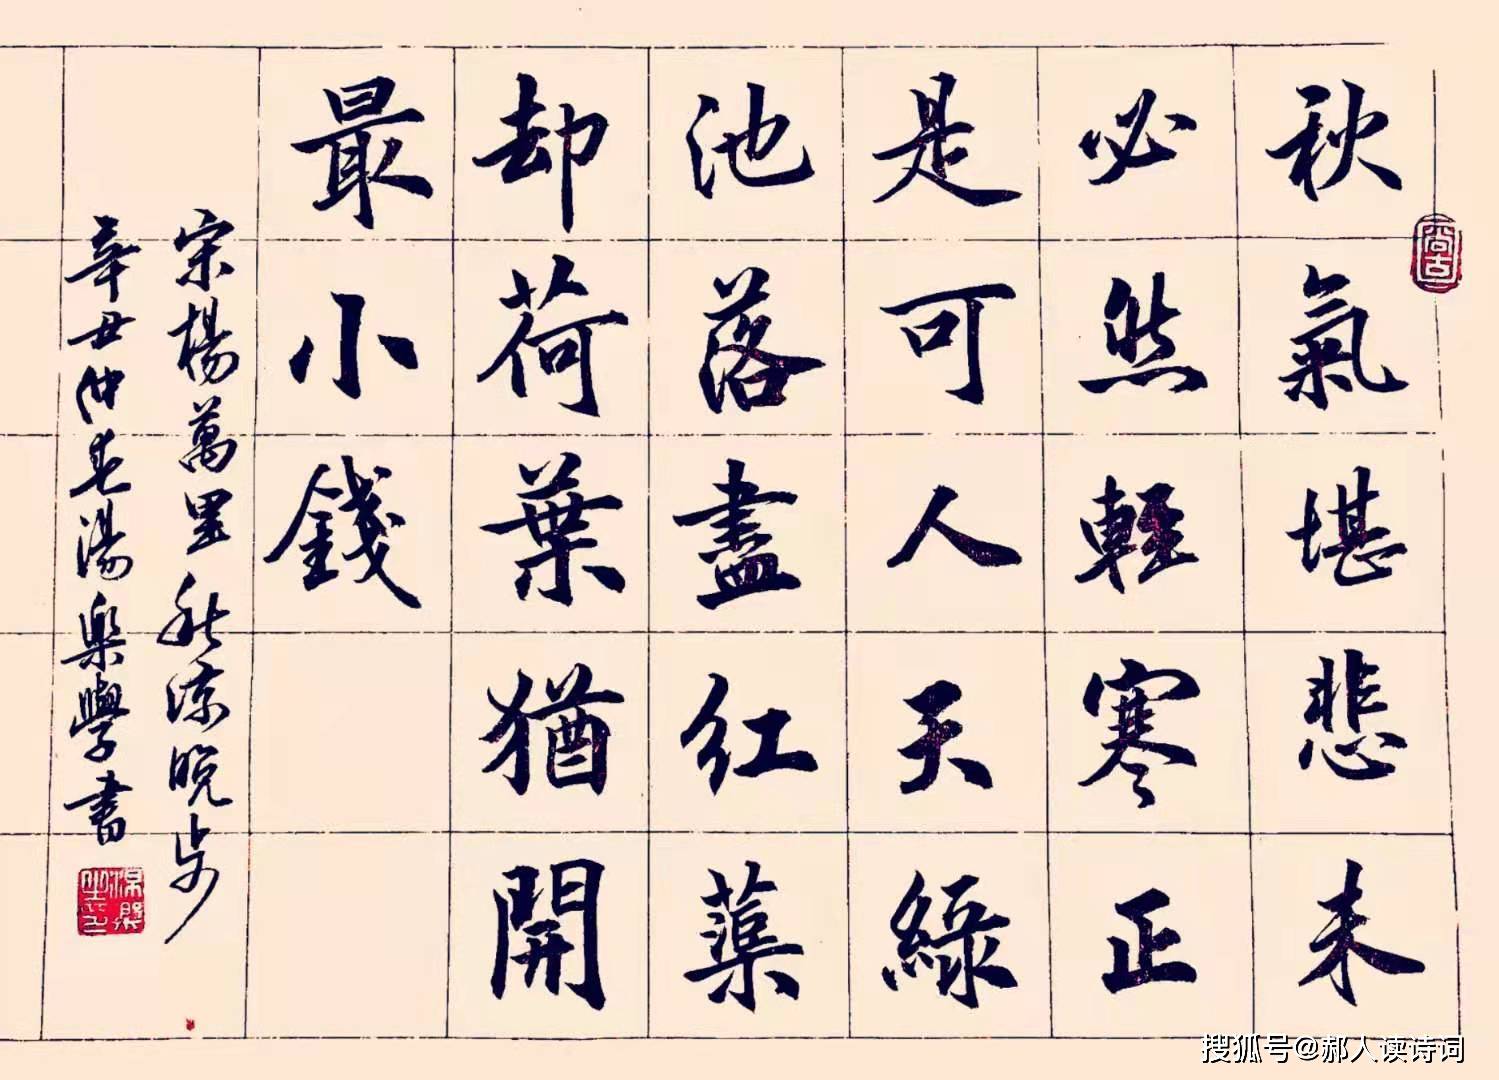 秋氣堪悲未
必然輕寒正
是可人天綠
池落盡紅蕖
却荷葉猶開
最小錢
宋楊萬里秋涼晚步
辛丑仲春湯樂學書
尚古
搜狐号@郝人读诗词